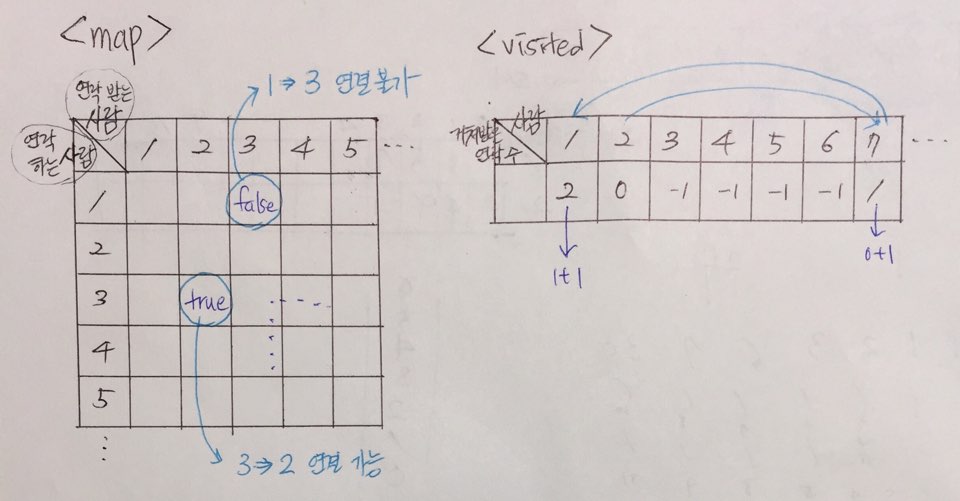 <map>
1 ⇒ 3 연결불가
연락 받는
사람
연락
하는 사람
1 2 3 4 5 ...
1 false
2
3 true
4
5
3 ⇒ 2 연결 가능
<visited>
사람
거쳐받은
연락 수
1 2 3 4 5 6 7 ...
2 0 -1 -1 -1 -1 1
1+1
0+1